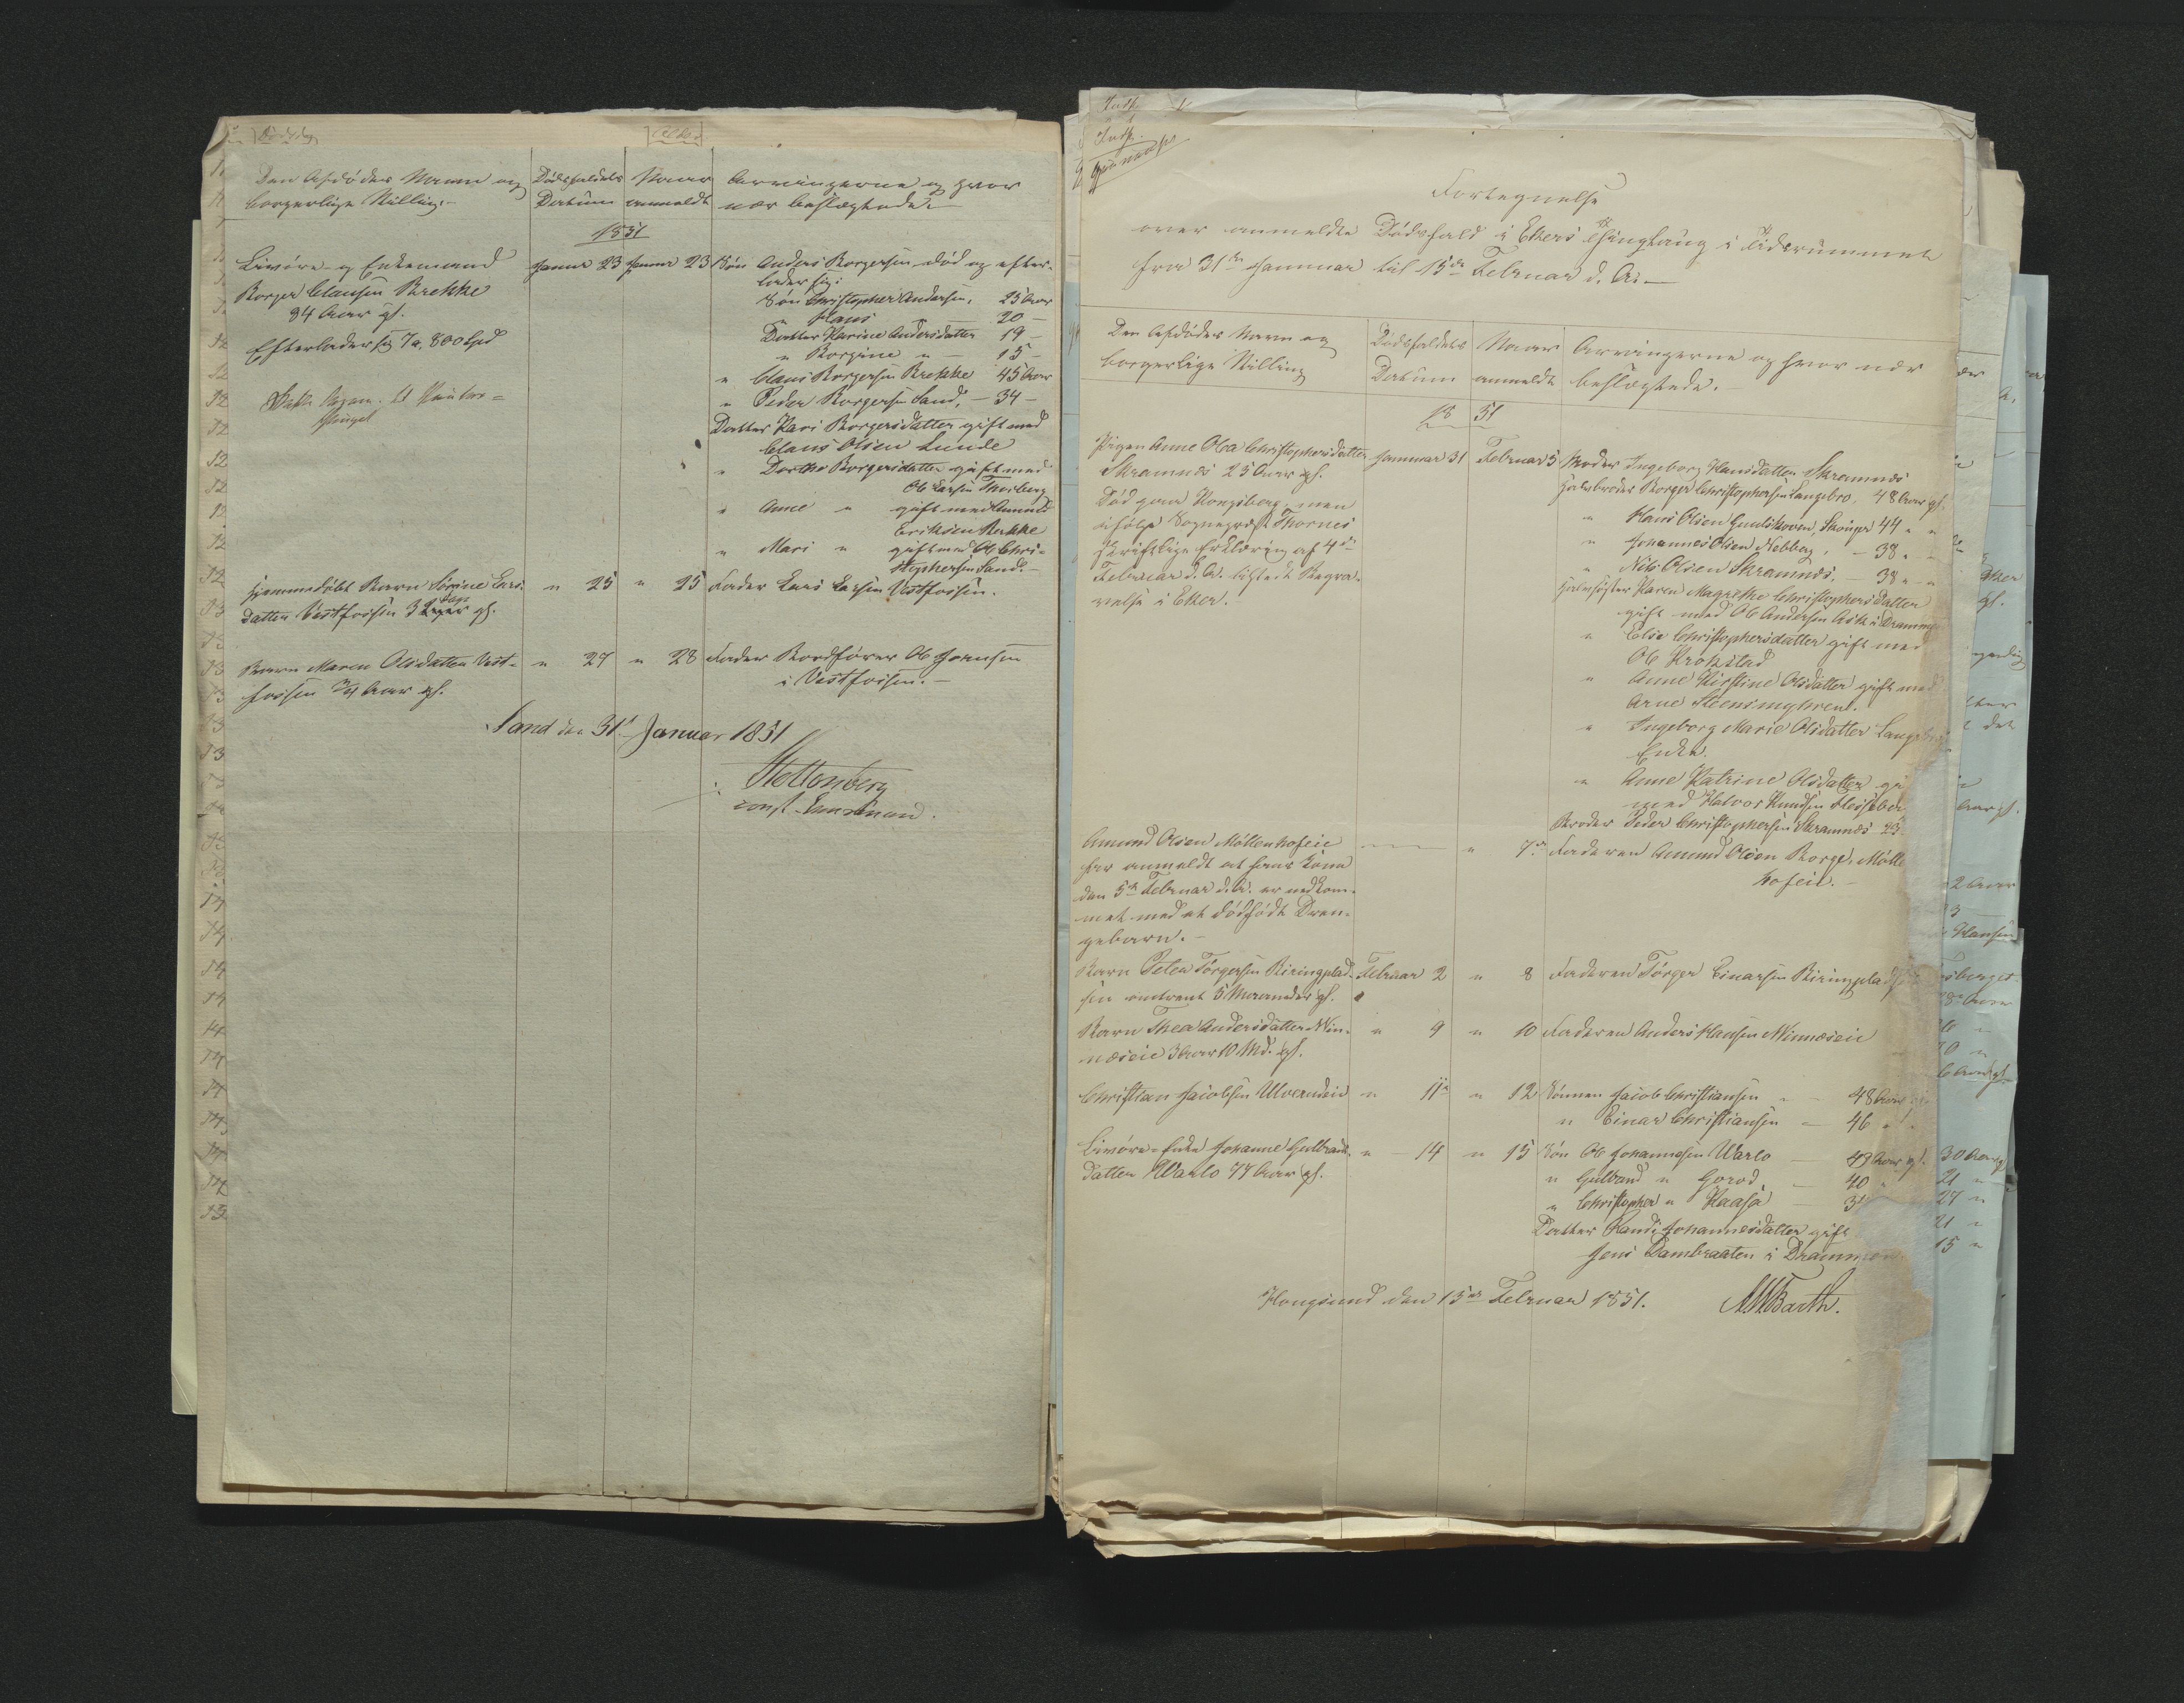 Den Afdødes Navn og
borgerlige Stilling.
Dødsfaldets
Datum
Naar
anmeldt
Arvingerne og hvor
nær beslægtede.
1851
Livøre- og Enkemand
Borger Clausen Brekke
84 Aar gl.
Efterlader sig
Januar 23 Januar 23
Søn Anders Borgersen død og efter-
lader sig:
Søn Christopher Andersen, 25 Aar
" Hans " 20 —
Datter Karine Andersdatter 19 —
" Borgine " — 15 —
" Claus Borgersen Brekke 45 Aar
" Peder Borgersen Sand, — 34 —
Datter Kari Borgersdatter gift med
Claus Olsen Lunde
" Dorthe Borgersdatter gift med
Ole Larsen Thorberg
" Anne " gift med Amund
Eriksen Bekke
" Mari " gift med Ole Chri-
stophersen Sand. —
Hjemmedøbt Barn Lars-
datter Vestfossen 3 Dage gl.
" 25 " 25 Fader Lars Larsen Vestfossen.
Barn Maren Olsdatter Vest-
fossen 3/4 Aar gl.
" 27 " 28 Fader Bordfører Ole Jonsen
i Vestfossen. —
Sand den 31' Januar 1851
Stoltenberg
const. Lensmand.
Fortegnelse
over anmeldte Dødsfald i Ekers Thinglaug i Tidsrummet
fra 31te Januar til 15de Februar d. A. —
Den Afdødes Navn og
borgerlige Stilling
Dødsfaldets
Datum
Naar
anmeldt
Arvingerne og hvor nær
beslægtede. —
1851
Pigen Anne Olea Christophersdatter
Skramnes 25 Aar gl.
Død paa Kongsberg, men
ifølge Sognepræst Thornes
skriftlige Erklæring af 4de
Februar d. A. tilstedt Begra-
velse i Eker. —
Januar 31 Februar 5
Moder Ingeborg Hansdatter Skramnes
Halvbroder Borger Christophersen Langebro, 48 Aar gl.
" Hans Olsen Skouger 44 " "
" Johannes Olsen Hebberg, — 38 " "
" Nils Olsen Skramnes, — 38 " "
Halvsøster Karen Magrethe Christophersdatter
gift med Ole Andersen Ask i Dramme
" Else Christophersdatter gift med
Ole Krokstad
" Anne Kirstine Olsdatter gift med
Arne Steensmyhren.
" Ingeborg Marie Olsdatter
Enke.
" Anne Katrine Olsdatter
med Halvor Knudsen
Broder Peder Christophersen Skramnes 23
Amund Olsen Møllenhofeie
har anmeldt at hans Kone
den 5te Februar d. A. er nedkom-
met med et dødfødt Dren-
gebarn. —
" 7de Faderen Amund Olsen Borge, Mølle
hofeie. —
Barn Petea Törgersen Biringplad-
sen omtrent 5 Maaneder gl.
Februar 2 " 8 Faderen Törger Einarsen Biringplad
Barn Thea Andersdatter Min-
næseie 3 Aar 10 Md. gl.
" 9 " 10 Faderen Anders Hansen Minnæseie
Christian Jacobsen Ulverudeie
" 11te " 12 Sønnen Jacob Christiansen " — 48 Aar
" Einar Christiansen — 46 "
Livøre-Enke Johanne Gulbrands-
datter Warlo 77 Aar gl.
" 14 " 15 Søn Ole Johannesen Warlo — 43 Aar gl.
" Gulbrand " Gorod, — 40 "
" Christopher " Kaasa —
Datter Randi Johannesdatter gift
Jens Dambraaten i Drammen
Hougsund den 15de Februar 1851. Barth.